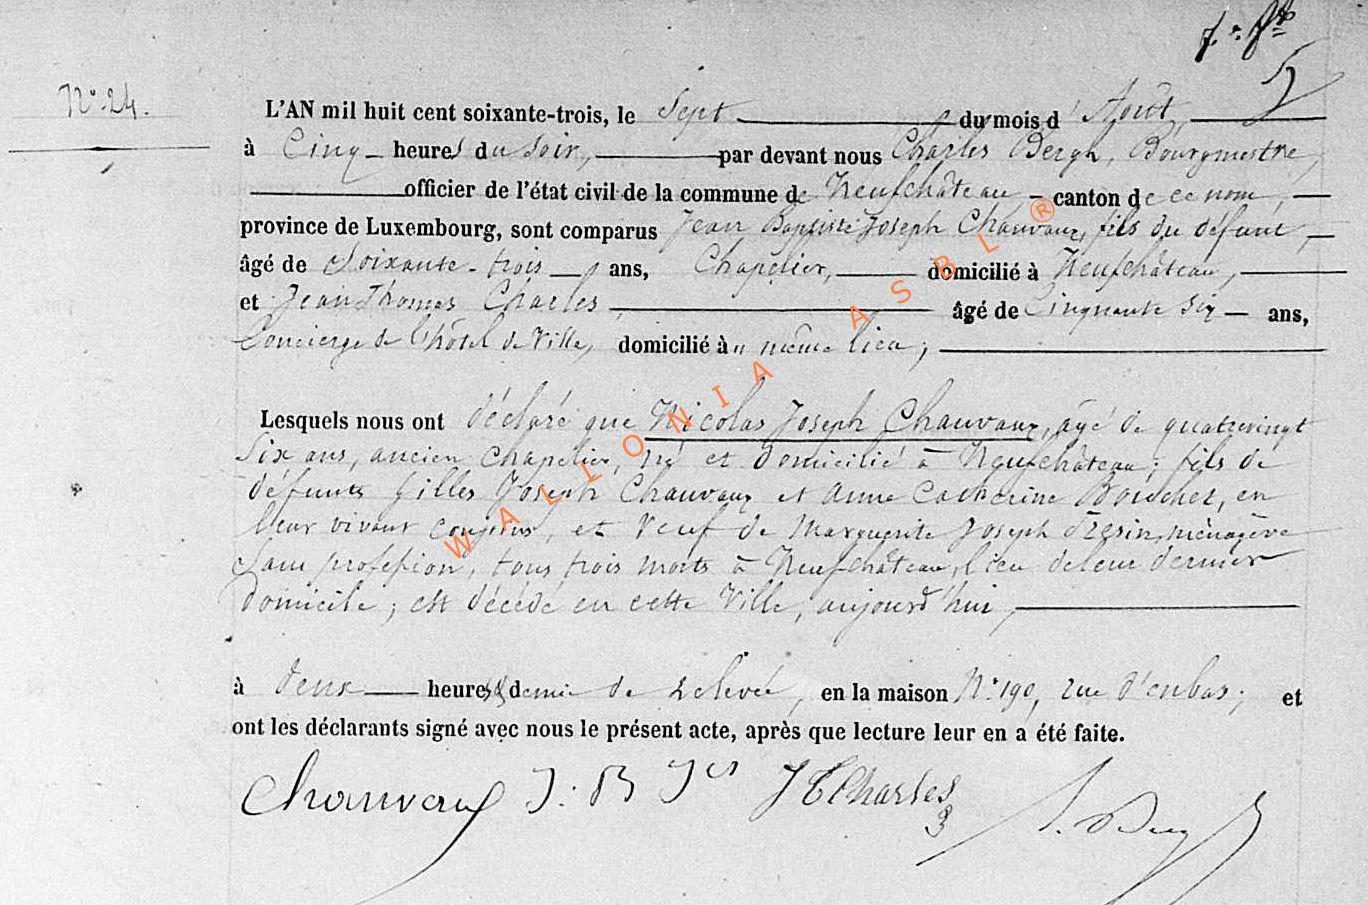 N° 24.
L'AN mil huit cent soixante-trois, le Sept du mois d'Août,
à Cinq heures du soir, par devant nous Charles Bergh, Bourgmestre,
officier de l'état civil de la commune de Neufchâteau canton de ce nom,
province de Luxembourg, sont comparus Jean Baptiste Joseph Chauvaux, fils du défunt,
âgé de Soixante-trois ans, Chapelier, domicilié à Neufchâteau,
et Jean Thomas Charles, âgé de Cinquante six ans,
Concierge de l'hôtel de Ville, domicilié à même lieu;
Lesquels nous ont déclaré que Nicolas Joseph Chauvaux, âgé de quatrevingt
Six ans, ancien Chapelier, né et domicilié à Neufchâteau; fils de
défunts Gilles Joseph Chauvaux et Anne Catherine Bouchez, en
leur vivant conjoins, et Veuf de Marguerite Joseph ménagère
sans profession, tous trois morts à Neufchâteau, lieu de leur dernier
domicile; est décédé en cette Ville, aujourd'hui,
à deux heures & demie de relevée, en la maison N° 190, rue d'enbas; et
ont les déclarants signé avec nous le présent acte, après que lecture leur en a été faite.
Chauvaux J: B Jh JTCharles
WALLONIA ASBL ®